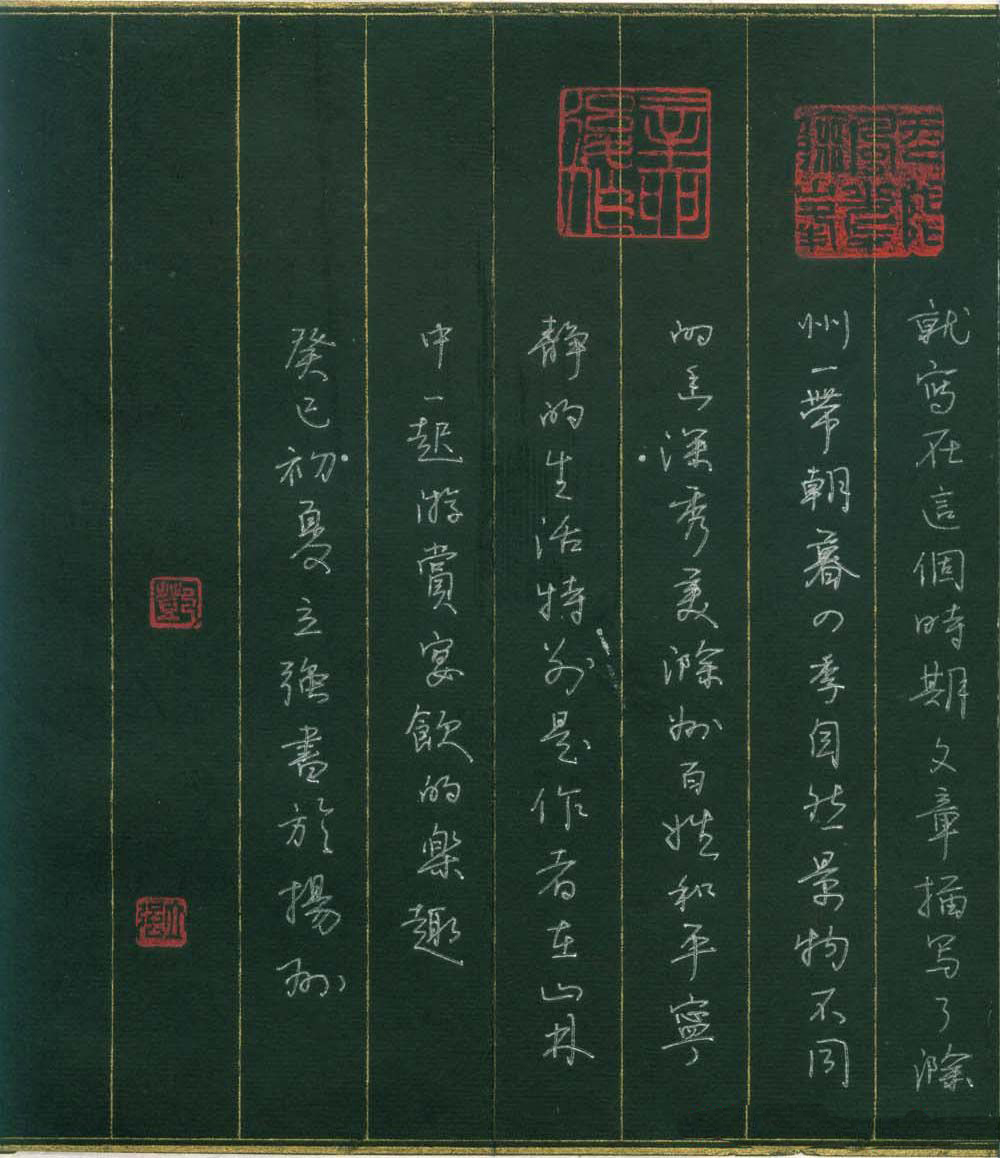 就寫在這個時期文章描写了滁
州一帶朝暮四季自然景物不同
的幽深秀美滁州百姓和平寧
靜的生活特別是作者在山林
中一起游賞宴飲的樂趣
癸巳初夏立強書於揚州
鄧
立強